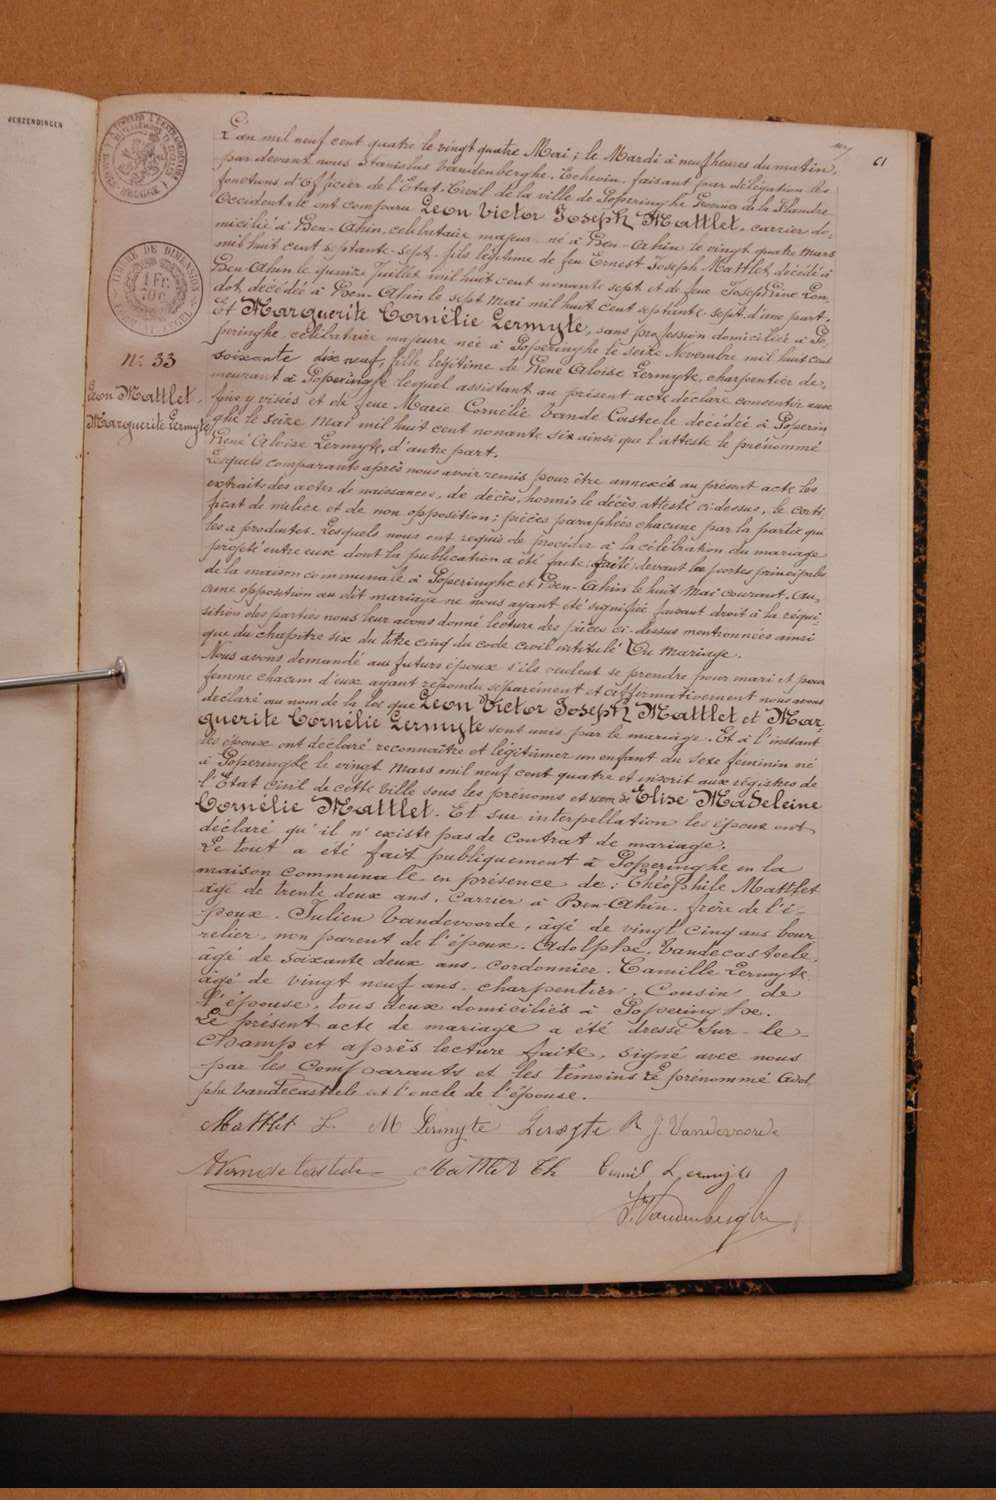 VERZENDINGEN
61
TIMBRE DE DIMENSION
1 Fr.
70 c.
N: 33
Leon Mattlet.
Marguerite Lermyte
L'an mil neuf cent quatre le vingt quatre Mai; le Mardi à neuf heures du matin,
par devant nous Stanislas Vandenberghe, Echevin, faisant par délégation les
fonctions d'Officier de l'Etat-Civil de la ville de Poperinghe Province de la Flandre
Occidentale ont comparu Leon Victor Joseph Mattlet, carrier do-
micilié à Ben-Ahin, célibataire majeur né à Ben-Ahin le vingt quatre Mars
mil huit cent septante-sept, fils légitime de feu Ernest Joseph Mattlet, décédé à
Ben-Ahin le quinze Juillet mil huit cent nonante sept et de feue Josephine Lon-
dot, décédée à Ben-Ahin le sept Mai mil huit cent septante-sept, d'une part.
Et Marguerite Cornélie Lermyte, sans profession domiciliée à Po-
peringhe, célibataire majeure née à Poperinghe le seize Novembre mil huit cent
soixante dix neuf, fille légitime de René Aloïse Lermyte, charpentier de-
meurant à Poperinghe lequel assistant au présent acte déclare consentir aux
fins y visées et de feue Marie Cornélie Vande Casteele décédée à Poperin
ghe le seize Mai mil huit cent nonante six ainsi que l'atteste le prénommé
René Aloïse Lermyte, d'autre part.
Lesquels comparants après nous avoir remis pour être annexés au présent acte les
extraits des actes de naissances, de décès, hormis le décès attesté ci dessus, le certi
ficat de milice et de non opposition; pièces paraphées chacune par la partie qui
les a produites. Lesquels nous ont requis de procéder à la célébration du mariage
projeté entre eux dont la publication a été faite devant les portes principales
de la maison communale à Poperinghe et Ben-Ahin le huit Mai courant. Au-
cune opposition au dit mariage ne nous ayant été signifiée, faisant droit à la réqui-
sition des parties nous leur avons donné lecture des pièces ci-dessus mentionnées ainsi
que du chapitre six du titre cinq du code civil intitulé Du Mariage.
Nous avons demandé aux futurs époux s'ils veulent se prendre pour mari et pour
femme chacun d'eux ayant repondu séparément et affirmativement nous avons
declaré au nom de la Loi que Leon Victor Joseph Mattlet et Mar-
guerite Cornélie Lermyte sont unis par le mariage. Et à l'instant
les époux ont déclaré reconnaître et légitimer un enfant du sexe féminin né
à Poperinghe le vingt Mars mil neuf cent quatre et inscrit aux régistres de
l'Etat Civil de cette ville sous les prénoms et nom de Elise Madeleine
Cornélie Mattlet. Et sur interpellation les époux ont
déclaré qu'il n'existe pas de contrat de mariage.
Le tout a été fait publiquement à Poperinghe en la
maison communale en présence de: Théophile Mattlet
âgé de trente deux ans, Carrier à Ben-Ahin, frère de l'é-
poux. Julien Vandevoorde, âgé de vingt cinq ans bour
relier, non parent de l'époux. Adolphe Vandecasteele,
âgé de soixante deux ans, cordonnier. Camille Lermyte
âgé de vingt neuf ans, charpentier, Cousin de
l'épouse, tous deux domiciliés à Poperinghe.
Le présent acte de mariage a été dressé sur-le-
champ et après lecture faite, signé avec nous
par les Comparants et les témoins Le prénommé Adol
phe Vandecasteele est l'oncle de l'épouse.
Mattlet L. M Lermyte Lermyte R J. Vandevoorde
AVandecasteele Mattlet Th Camil Lermyte
St. Vandenberghe